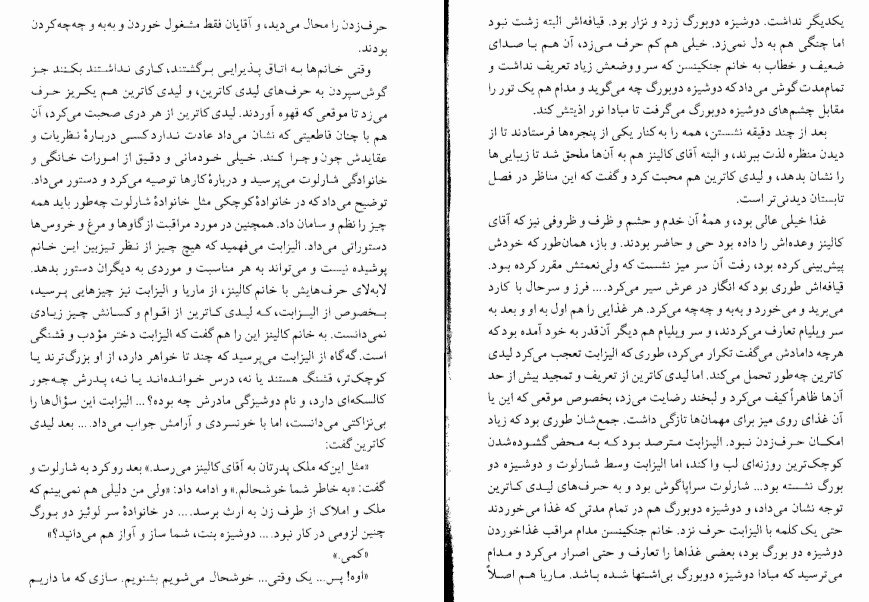 یکدیگر نداشت. دوشیزه دوبورگ زرد و نزار بود. قیافه‌اش البته زشت نبود
اما چنگی هم به دل نمی‌زد. خیلی هم کم حرف می‌زد، آن هم با صدای
ضعیف و خطاب به خانم جنکینسن که سر و وضعش زیاد تعریف نداشت و
تمام‌مدت گوش می‌داد که دوشیزه دوبورگ چه می‌گوید و مدام هم یک تور را
مقابل چشم‌های دوشیزه دوبورگ می‌گرفت تا مبادا نور اذیتش کند.
بعد از چند دقیقه نشستن، همه را به کنار یکی از پنجره‌ها فرستادند تا از
دیدن منظره لذت ببرند، و البته آقای کالینز هم به آن‌ها ملحق شد تا زیبایی‌ها
را نشان بدهد، و لیدی کاترین هم محبت کرد و گفت که این مناظر در فصل
تابستان دیدنی‌تر است.
غذا خیلی عالی بود، و همهٔ آن خدم و حشم و ظرف و ظروفی نیز که آقای
کالینز وعده‌اش را داده بود حی و حاضر بودند. و باز، همان‌طور که خودش
پیش‌بینی کرده بود، رفت آن سر میز نشست که ولی‌نعمتش مقرر کرده بود.
قیافه‌اش طوری بود که انگار در عرش سیر می‌کرد.... فرز و سرحال با کارد
می‌برید و می‌خورد و به‌به و چه‌چه می‌کرد. هر غذایی را هم اول به او و بعد به
سر ویلیام تعارف می‌کردند، و سر ویلیام هم دیگر آن‌قدر به خود آمده بود که
هرچه دامادش می‌گفت تکرار می‌کرد، طوری که الیزابت تعجب می‌کرد لیدی
کاترین چه‌طور تحمل می‌کند. اما لیدی کاترین از تعریف و تمجید بیش از حد
آن‌ها ظاهراً کیف می‌کرد و لبخند رضایت می‌زد، بخصوص موقعی که این یا
آن غذای روی میز برای مهمان‌ها تازگی داشت. جمع‌شان طوری بود که زیاد
امکان حرف‌زدن نبود. الیزابت مترصد بود که به محض گشوده‌شدن
کوچک‌ترین روزنه‌ای لب وا کند، اما الیزابت وسط شارلوت و دوشیزه دو
بورگ نشسته بود... شارلوت سراپاگوش بود و به حرف‌های لیدی کاترین
توجه نشان می‌داد، و دوشیزه دوبورگ هم در تمام مدتی که غذا می‌خوردند
حتی یک کلمه با الیزابت حرف نزد. خانم جنکینسن مدام مراقب غذاخوردن
دوشیزه دو بورگ بود، بعضی غذاها را تعارف و حتی اصرار می‌کرد و مدام
می‌ترسید که مبادا دوشیزه دوبورگ بی‌اشتها شده باشد. ماریا هم اصلاً
حرف‌زدن را محال می‌دید، و آقایان فقط مشغول خوردن و به‌به و چه‌چه‌کردن
بودند.
وقتی خانم‌ها به اتاق پذیرایی برگشتند، کاری نداشتند بکنند جز
گوش‌سپردن به حرف‌های لیدی کاترین، و لیدی کاترین هم یکریز حرف
می‌زد تا موقعی که قهوه آوردند. لیدی کاترین از هر دری صحبت می‌کرد، آن
هم با چنان قاطعیتی که نشان می‌داد عادت ندارد کسی دربارهٔ نظریات و
عقایدش چون و چرا کند. خیلی خودمانی و دقیق از امورات خانگی و
خانوادگی شارلوت می‌پرسید و دربارهٔ کارها توصیه می‌کرد و دستور می‌داد.
توضیح می‌داد که در خانوادهٔ کوچکی مثل خانوادهٔ شارلوت چه‌طور باید همه
چیز را نظم و سامان داد. همچنین در مورد مراقبت از گاوها و مرغ و خروس‌ها
دستوراتی می‌داد. الیزابت می‌فهمید که هیچ چیز از نظر تیزبین این خانم
پوشیده نیست و می‌تواند به هر مناسبت و موردی به دیگران دستور بدهد.
لابه‌لای حرف‌هایش با خانم کالینز، از ماریا و الیزابت نیز چیزهایی پرسید،
بخصوص از الیزابت، که لیدی کاترین از اقوام و کسانش چیز زیادی
نمی‌دانست. به خانم کالینز این را هم گفت که الیزابت دختر مؤدب و قشنگی
است. گه‌گاه از الیزابت می‌پرسید که چند تا خواهر دارد، از او بزرگ‌ترند یا
کوچک‌تر، قشنگ هستند یا نه، درس خوانده‌اند یا نه، پدرش چه‌جور
کالسکه‌ای دارد، و نام دوشیزگی مادرش چه بوده؟ ... الیزابت این سؤال‌ها را
بی‌نزاکتی می‌دانست، اما با خونسردی و آرامش جواب می‌داد.... بعد لیدی
کاترین گفت:
«مثل این‌که ملک پدرتان به آقای کالینز می‌رسد.» بعد رو کرد به شارلوت و
گفت: «به خاطر شما خوشحالم.» و ادامه داد: «ولی من دلیلی هم نمی‌بینم که
ملک و املاک از طرف زن به ارث برسد.... در خانوادهٔ سر لوئیز دو بورگ
چنین لزومی در کار نبود. ... دوشیزه بنت، شما ساز و آواز هم می‌دانید؟»
«کمی.»
«اوه! پس... یک وقتی... خوشحال می‌شویم بشنویم. سازی که ما داریم